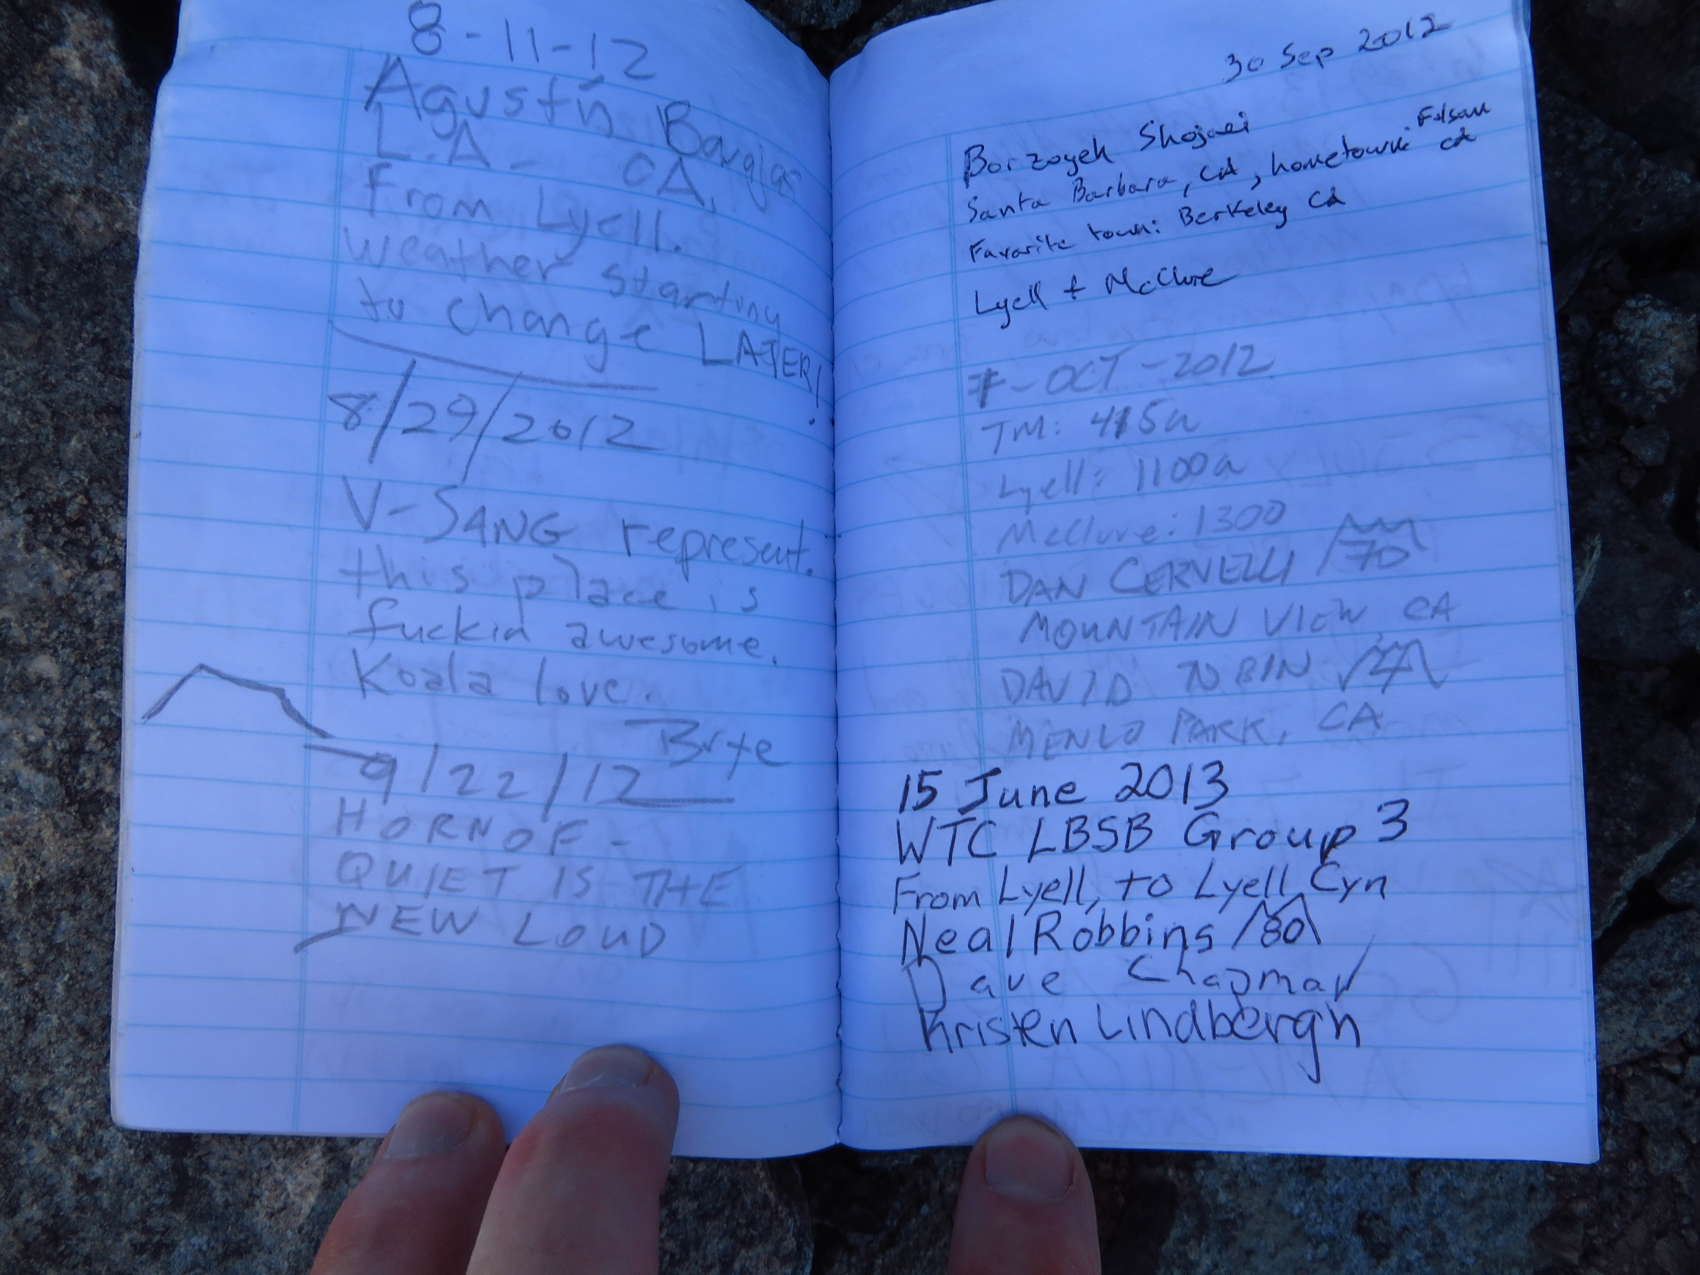 8-11-12
Agustin
L.A- CA,
from Lyell.
weather starting
to change LATER!
8/29/2012
V-SANG represent.
this place is
fuckin awesome.
Koala love.
Brye
9/22/12
HORNOF -
QUIET IS THE
NEW LOUD
30 Sep 2012
Borzoyeh Shojaei
Santa Barbara, CA, hometown: Folsom CA
Favorite town: Berkeley CA
Lyell + McClure
7-OCT-2012
TM: 415a
Lyell: 1100a
McClure: 1300
DAN CERVELLI 70
MOUNTAIN VIEW CA
DAVID TOBIN
MENLO PARK, CA
15 June 2013
WTC LBSB Group 3
From Lyell, to Lyell Cyn
Neal Robbins 80
Dave Chapman
Kristen Lindbergh